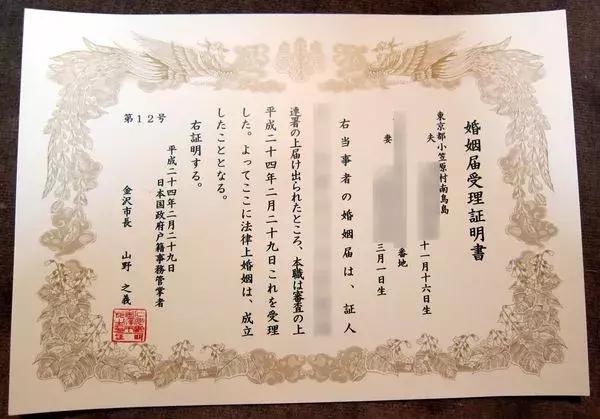 婚姻届受理証明書
東京都小笠原村南鳥島
夫
十一月十六日生
番地
妻
三月一日生
右当事者の婚姻届は、証人
連署の上届け出られたところ、本職は審査の上
平成二十四年二月二十九日これを受理
した。よってここに法律上婚姻は、成立
したこととなる。
右証明する。
第12号
平成二十四年二月二十九日
日本国政府戸籍事務管掌者
金沢市長 山野 之義